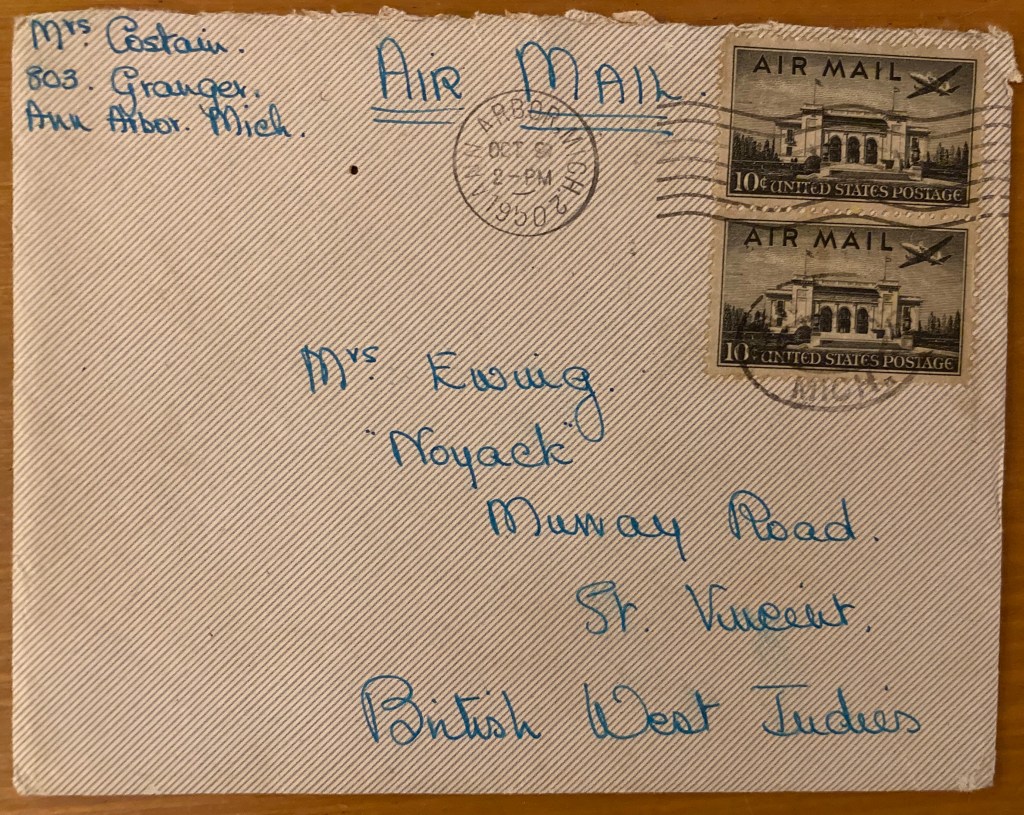 Mrs. Costain.
803. Granger.
Ann Arbor. Mich.
AIR MAIL.
ANN ARBOR MICH. 2
OCT
2-PM
1950
AIR MAIL
10¢ UNITED STATES POSTAGE
AIR MAIL
10¢ UNITED STATES POSTAGE
MICH.
Mrs Ewing.
"Noyack"
Murray Road.
St. Vincent.
British West Indies